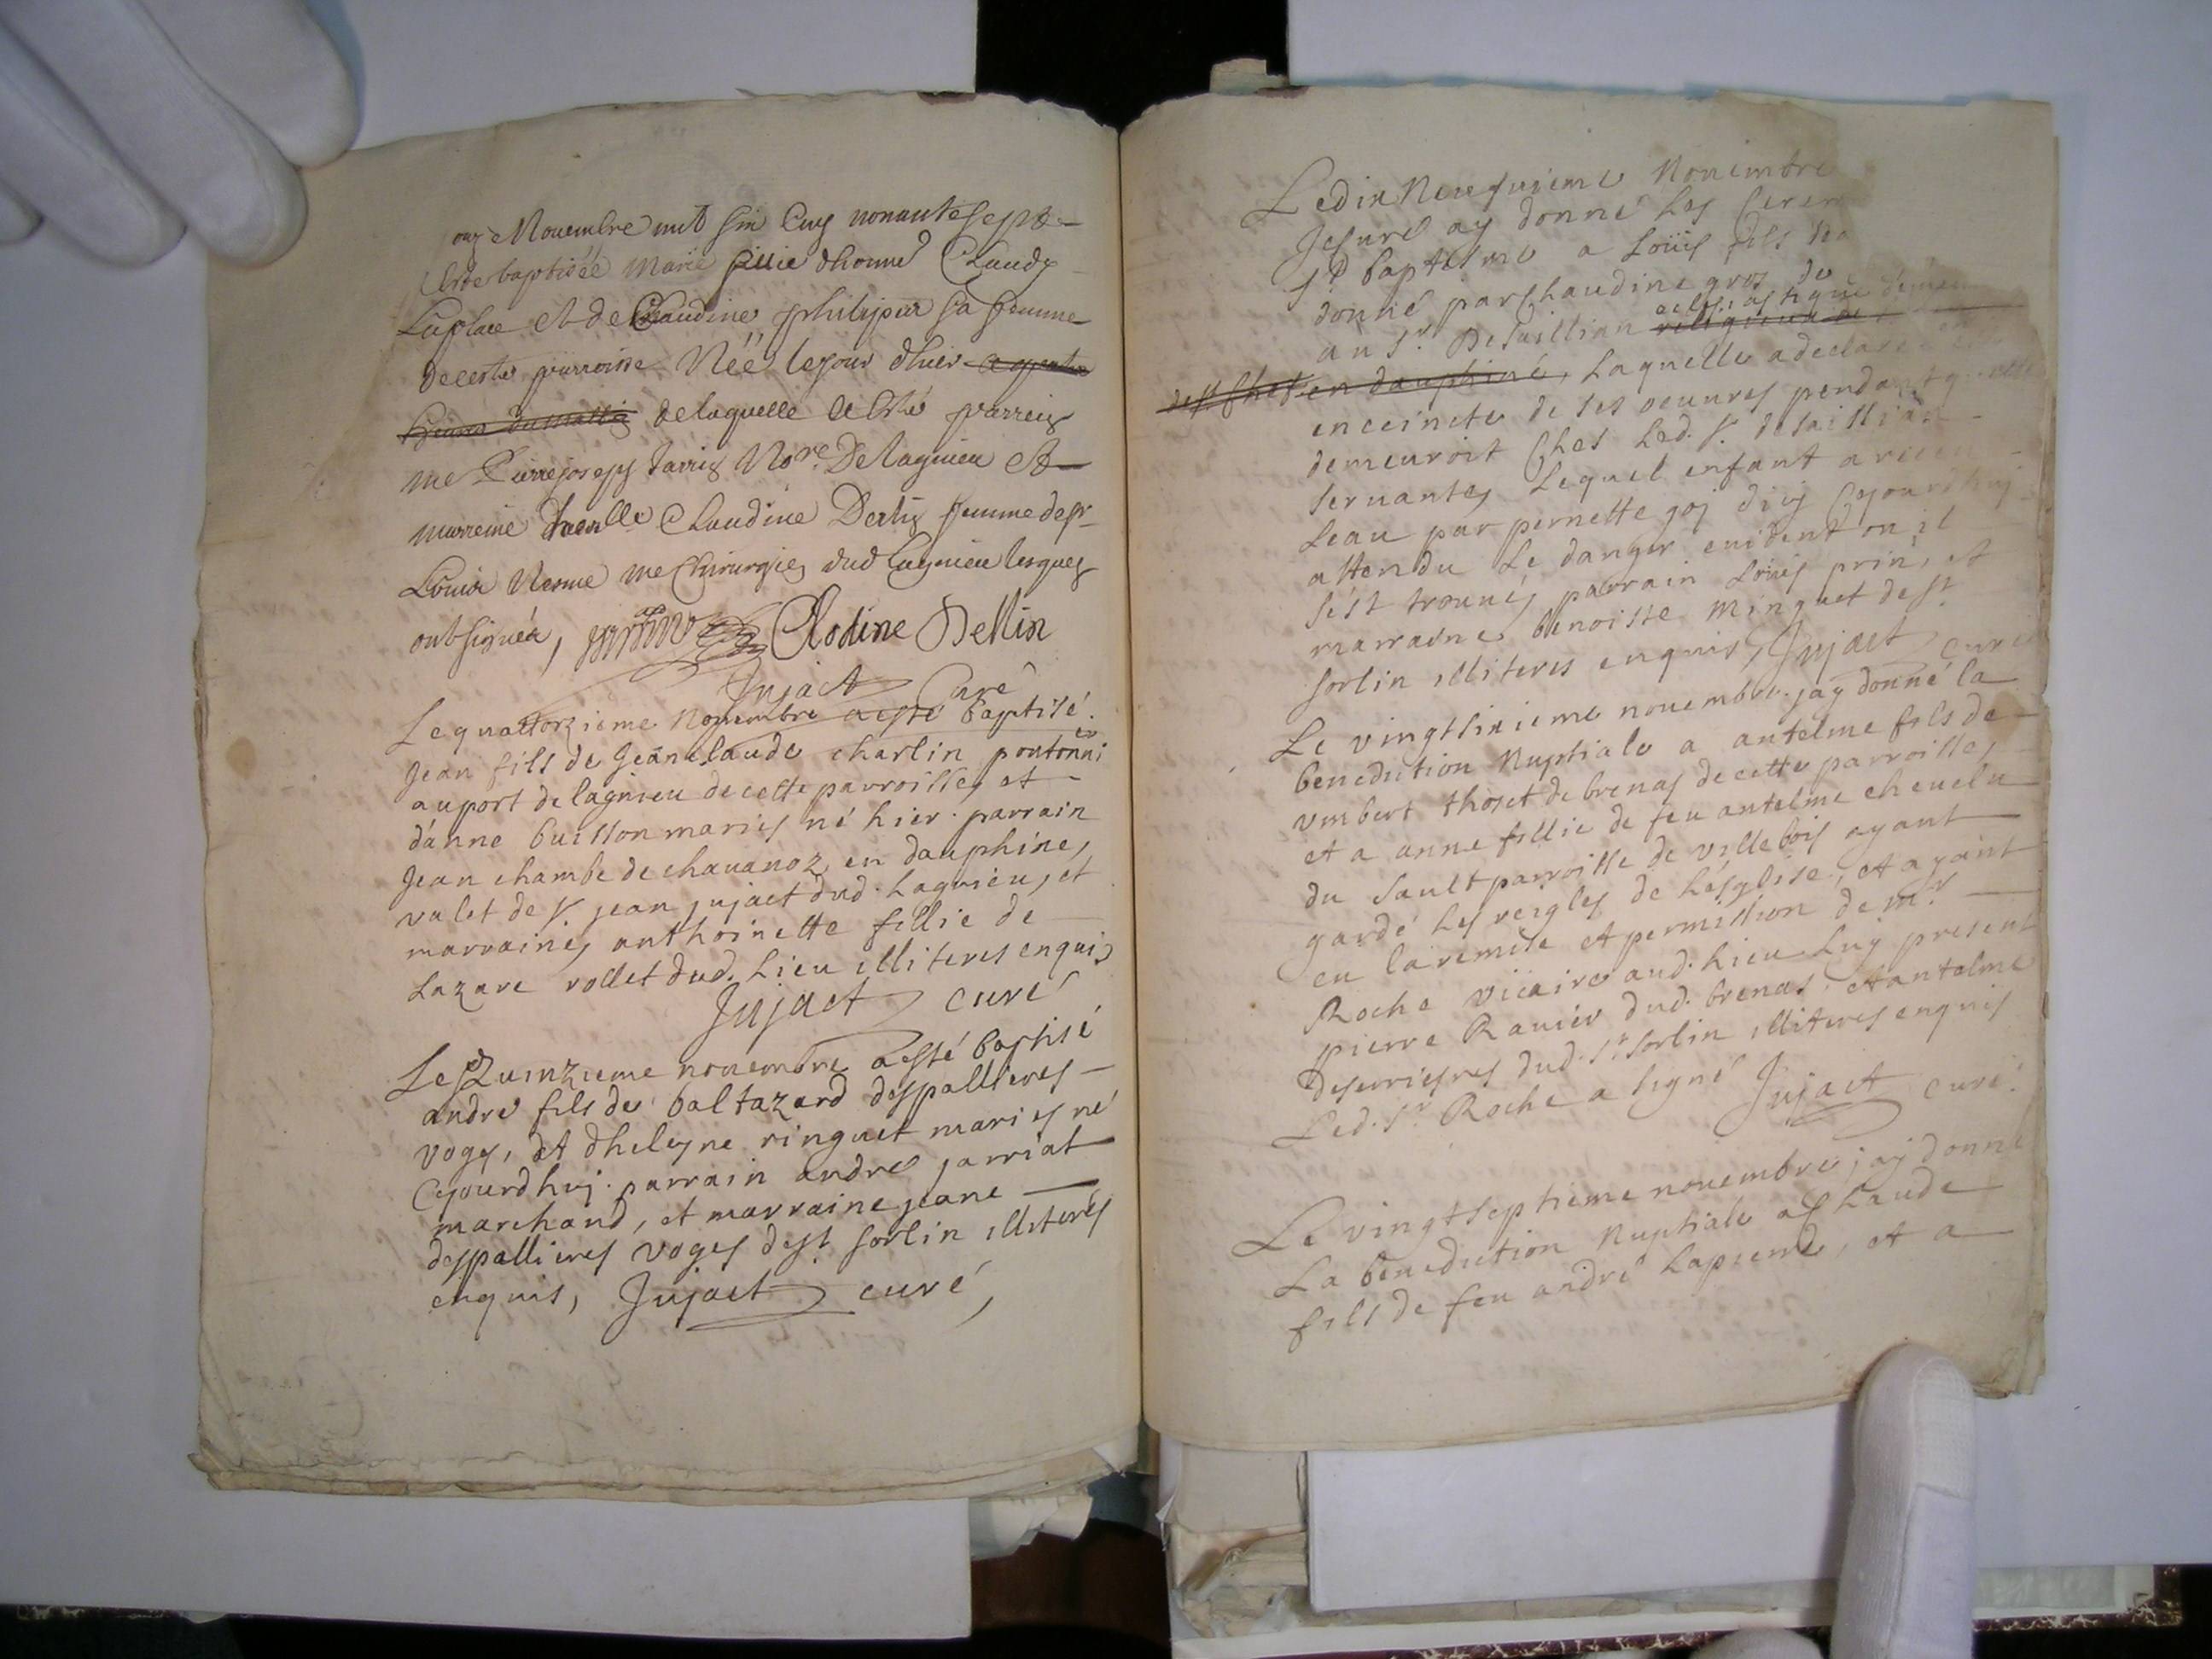 onze Novembre mil six Cens nonante sept
A Esté baptisée Marie fillie dhonné Claudy
Laplace Et de Claudine philipon sa femme
de ceste parroisse Néé le jour dhier
de laquelle a Esté parrein
me Pierre joseph No.re De lagnieu Et
marreine Claudine femme de sr
Louis me Chirurgien dud lagnieu lesquels
ont signéz, Clodine Dellin
Jujact Curé
Le quattorzieme novembre a esté baptisé
Jean fils de Jean claude charlin pontonnier
au port de lagnieu de cette parroisse, et
d'anne buisson mariés né hier. parrain
Jean chambe de chavanoz en dauphiné,
valet de Sr. jean jujact dud. Lagnieu, et
marraine anthoinette fillie de
Lazare rollet dud. Lieu illiteres enquis
Jujact curé
Le Quinzieme novembre a esté baptisé
andré fils de baltazard despallieres
voges, et dheleyne ringuet mariés né
Cejourdhuj. parrain andré jarriat
marchand, et marraine jeane
despallieres voges de St sorlin illiterés
enquis, Jujact curé,
Le dix Neusuieme Novembre
Je curé ay donné Les Cerem
St baptesme a Loüis fils
donné par Chaudine gros de
ecclesiastique demeu
au Sr. De Saillian religieux de
de St Chef en dauphiné, Laquelle a declaré
enceincte de ses oeuvres pendant
demeuroit Ches Led. Sr. de saillian
servante, Lequel enfant a receu
Leau par pernette goj Cejourdhuj
attendu Le danger evident ou il
s'est trouué, parrain Loüis prin, et
marraine benoiste minguet de St
sorlin illiteres enquis, Jujact curé
Le vingtsixieme novembre jay donné la
benediction Nuptiale a antelme fils de
vmbert thoset de brenas de cette parroisse,
et a anne fillie de feu antelme chevelu
du Sault parroisse de villebois ayant
gardé Les reigles de Lesglise, et ayant
eu la remise et permission de mr.
Roche vicaire aud. Lieu Luy present
pierre Ravier dud. brenas. et antelme
deserrieres dud. St sorlin illiteres enquis
Led. Sr. Roche a signé Jujact curé.
Le vingtseptieme novembre jay donné
La benediction Nuptiale a Claude
fils de feu andré Lapierre, et a